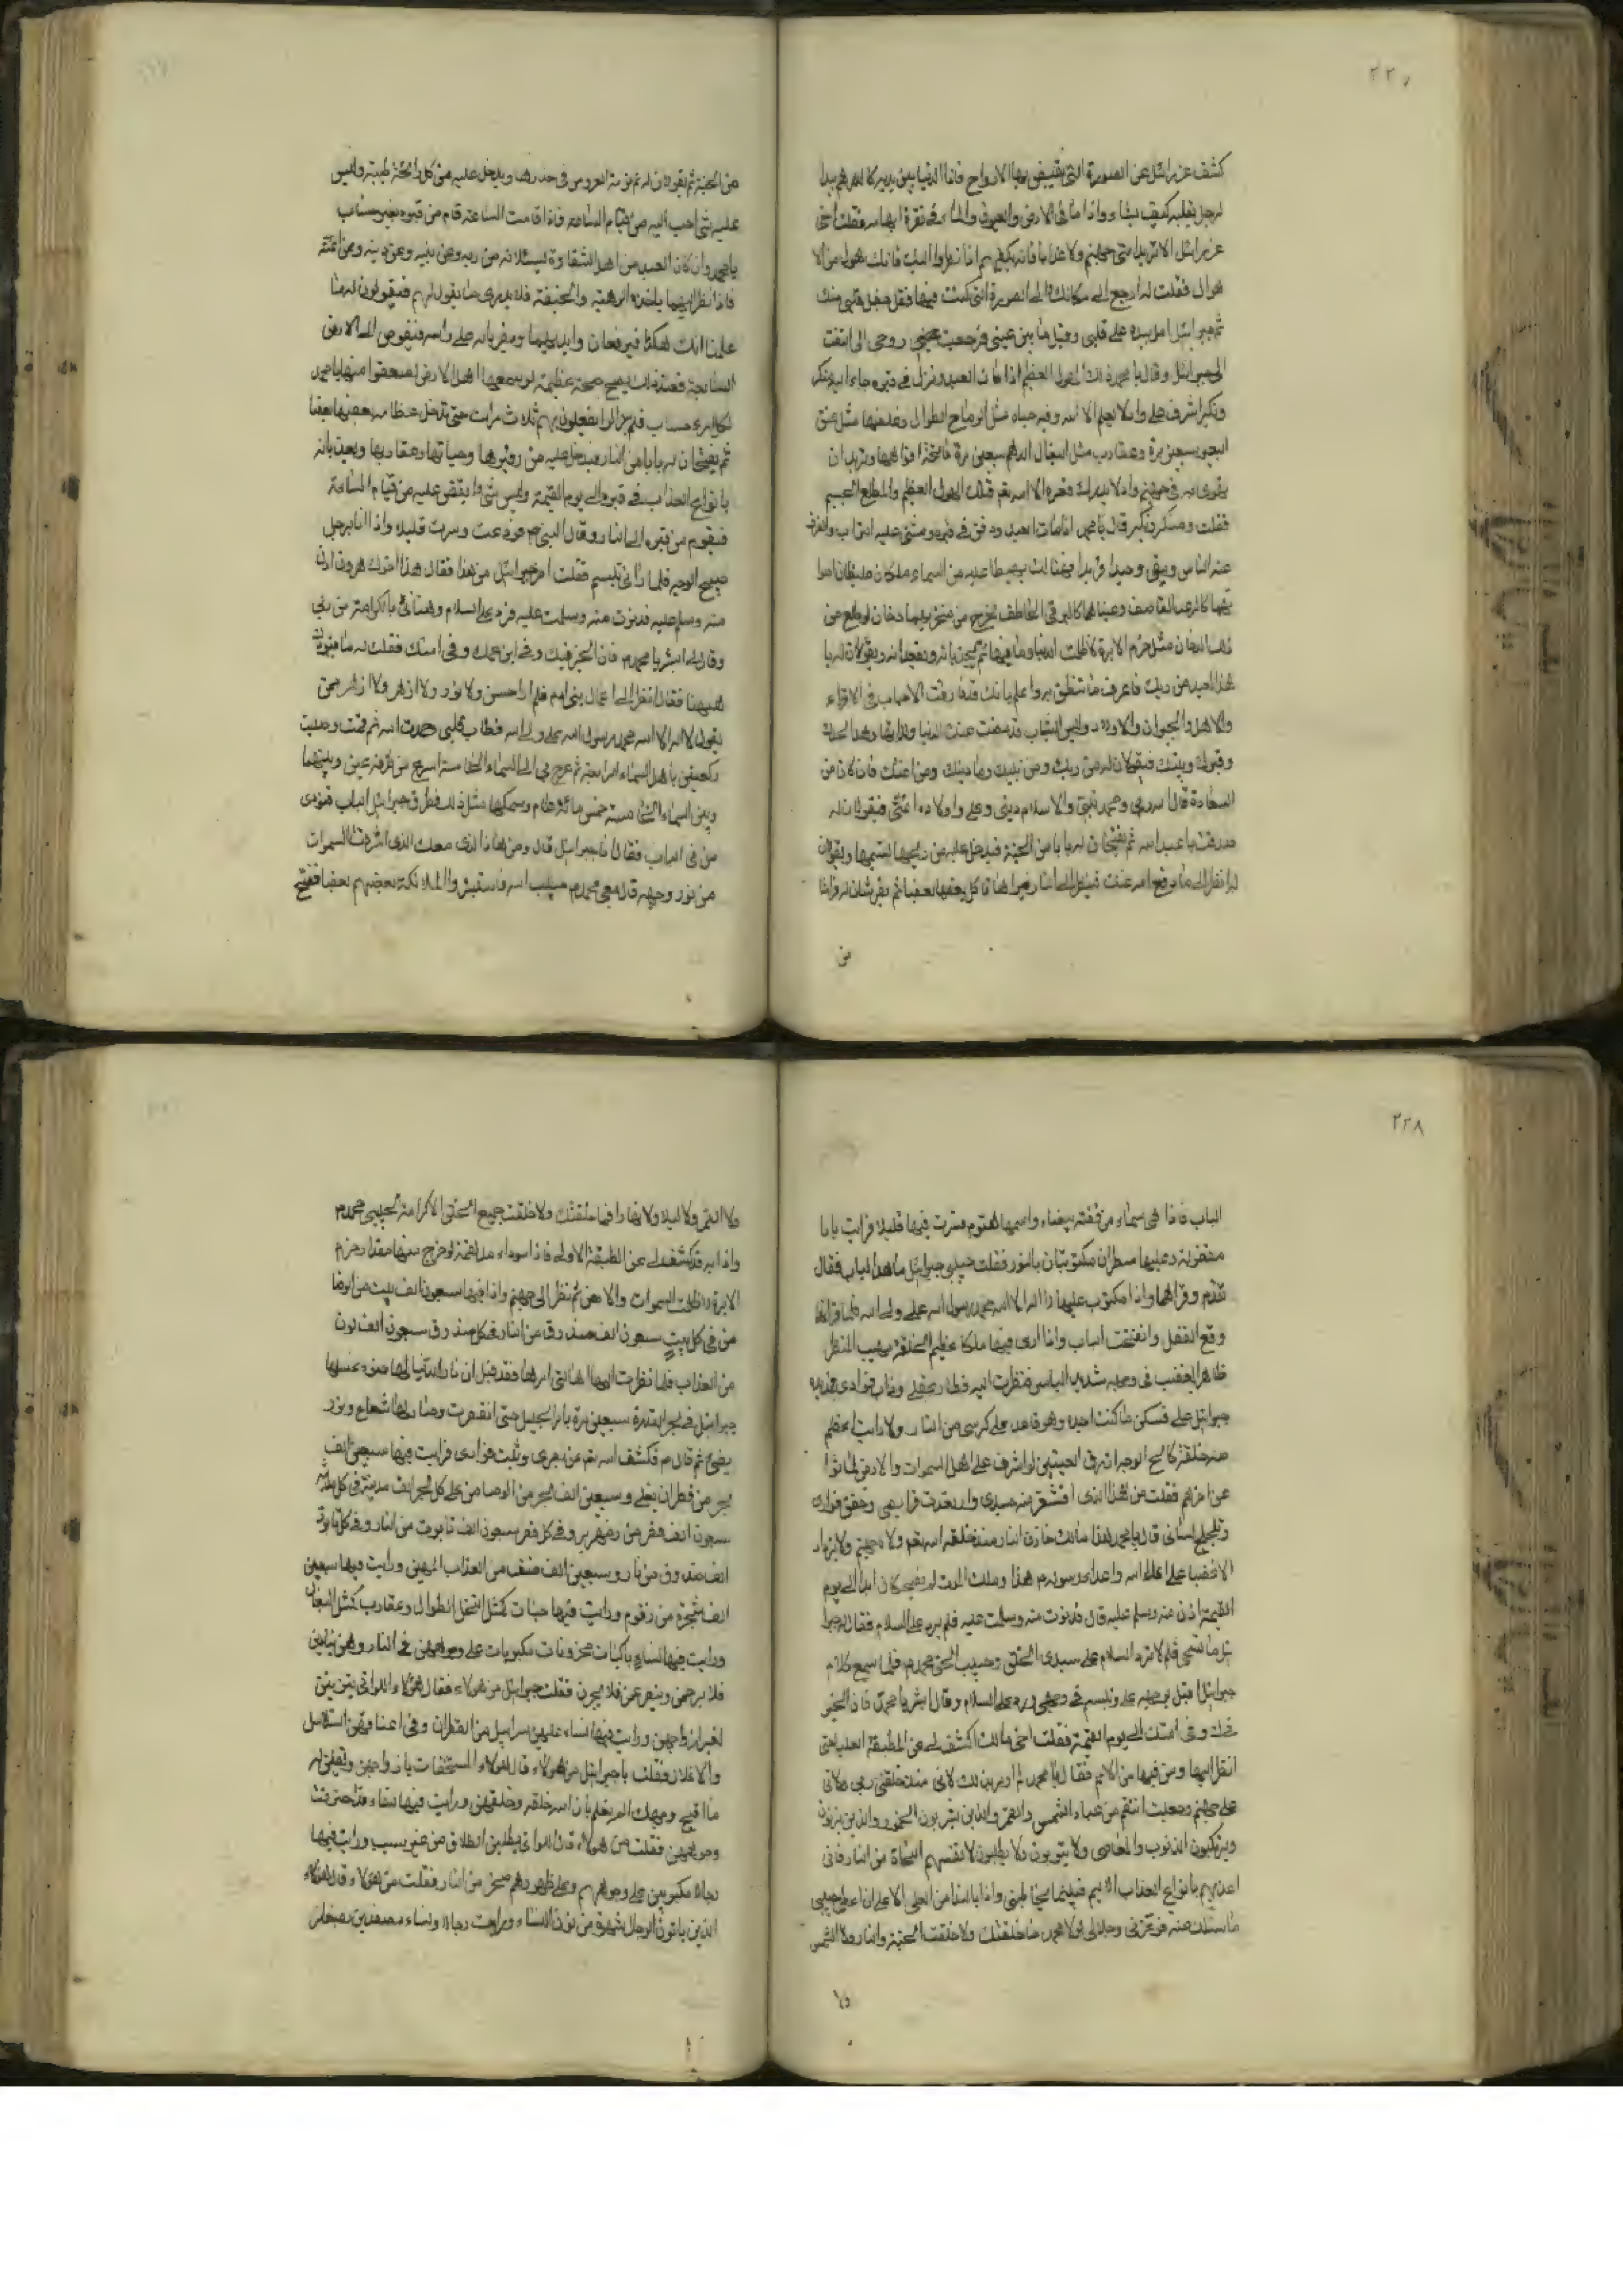 ٢٢٧
كشف عزرائيل عن الصورة التي يقبض بها الارواح فاذا الدنيا بين يديه كالدرهم بيد
الرجل يقلبه كيف يشاء واذا ما في الارض والبحور والماء في نقرة ابهامه فقلت اخي
عزرائيل الا تريد متى جهنم ولا عذابا فانه يكفيهم اذا نظروا اليك فانك هول من الا
هوال فقلت له ارجع الى مكانك والى الصورة التي كنت فيها فقل جفل قلبي منك
ثم جبرائيل امر بيده على قلبي وقبل ما بين عيني فرجعت روحي الي التفت
الى جبرائيل وقال يا محمد الهول العظيم اذا مات العبد ونزل في قبره جاء اليه منكر
ونكير لا يعلم الا الله وفيه حياة مثل الرماح الطوال مثل عنق
البعير سبعين مرة وعقارب مثل البغال الدهم سبعين مرة فاتحة افواهها وتريد ان
الا الله نعم فذلك الهول العظيم والمطلع الجسيم
فقلت ومنكر ونكير قال يا محمد اذا مات العبد ودفن في قبره ومشى عليه التراب وانصرف
عنه الناس وبقي وحيدا فريدا فهنالك يهبط عليه من السماء ملكان غليظان
كالرعد القاصف وعيناهما كالبرق الخاطف يخرج من منخريهما دخان لو طلع من
ذلك الدخان مثل خرم الابرة لاظلمت الدنيا وما فيها ثم يجذبانه ويقعدانه ويقولان له يا
هذا العبد من ربك فاعرف ما تنطق به واعلم بانك قد فارقت الاحباب والاقرباء
والاهل والجيران والاولاد والبس الثياب قد مضت عنك الدنيا ولذاتها وهذا لحدك
وقبرك وبيتك فيقولان له من ربك ومن نبيك وما دينك ومن امامك فان كان من
السعادة قال الله ربي ومحمد نبيي والاسلام ديني وعلي واولاده ائمتي فيقولان له
صدقت يا عبد الله ثم يفتحان له بابا من الجنة فيدخل عليه من ريحها ونسيمها ويقولان
له انظر الى ما دفع الله عنك فينظر الى النار فيراها تاكل بعضها بعضا ثم يفرشان له فراشا
من
من الجنة ثم يقولان له نم نومة العروس في خدرها ويدخل عليه من كل رائحة طيبة وليس
عليه شيء احب اليه من قيام الساعة فاذا قامت الساعة قام من قبره بغير حساب
يا محمد وان كان العبد من اهل الشقاوة ليسئلانه من ربه وعن نبيه وعن دينه وعن ائمته
فاذا نظر اليهما ياخذه الرهبة والخيفة فلا يدري ما يقول لهم فيقولون له منا
علمنا انك هكذا فيرفعان وايديهما ويضربانه على راسه فيغوص الى الارض
السابعة فعند ذلك يصيح صيحة عظيمة لو سمعها اهل الارض لصعقوا منها يا محمد
لكل امرء حساب فلم يزالوا يفعلون بهم ثلاث مرات حتى تدخل عظامه بعضها بعضا
ثم يفتحان له بابا من النار فيدخل عليه من زفيرها وحياتها وعقاربها ويعذبانه
بانواع العذاب في قبره الى يوم القيمة وليس شيء ابغض عليه من قيام الساعة
فيقوم من قبره الى النار وقال النبي ص فودعت وسرت قليلا واذا انا برجل
صبيح الوجه فلما رآني تبسم فقلت اخي جبرائيل من هذا فقال هذا اخوك هرون ادن
منه وسلم عليه فدنوت منه وسلمت عليه فرد علي السلام وهنأني بالكرامة من ربي
وقال لي ابشر يا محمد فان الخير فيك وفي ابن عمك وفي امتك فقلت له ما
ههنا فقال انظر الى اعمال بني ادم فلم ار احسن ولا نور ولا ازهر ولا اظهر ممن
يقول لا اله الا الله محمد رسول الله علي ولي الله فطاب قلبي حمدت الله ثم قمت وصليت
ركعتين باهل السماء الرابعة ثم عرج بي الى السماء الخامسة اسرع من طرفة عين وبينهما
وبين السماء الخامسة خمس مائة عام وسمكها مثل ذلك فطرق جبرائيل الباب فنودي
من في الباب فقال انا جبرائيل قال ومن هذا الذي معك الذي اشرقت السموات
من نور وجهه قال معي محمد حبيب الله فاستبشروا الملائكة بعضهم بعضا ففتح
٢٢٨
الباب فاذا هي سماء من فضة بيضاء واسمها فسرت فيها قليلا فرايت بابا
مقفولة وعليها سطران مكتوبان بالنور فقلت حبيبي جبرائيل ما هذا الباب فقال
تقدم وقراهما واذا مكتوب عليها لا اله الا الله محمد رسول الله علي ولي الله فلما قراتها
وقع القفل وانفتحت الباب واذا ارى فيها ملكا عظيم الخلقة مهيب المنظر
ظاهر الغضب في وجهه شديد الباس فنظرت اليه فطار عقلي وذاب فؤادي
جبرائيل علي فسكن ما كنت اجده وهو قاعد على كرسي من النار ولا رايت اعظم
منه خلقة كالح الوجه ازرق العينين لو اشرف على اهل السموات والارض لماتوا
عن اخرهم فقلت من هذا الذي اقشعر منه جسدي وارتعدت فرايصي وخفق فؤادي
وتلجلج لساني قال يا محمد هذا مالك خازن النار منذ خلقه الله تعم ولا يزداد
الا غضبا على اعداء الله واعداء رسوله هذا وملك الموت لم يضحكان ابدا الى يوم
القيمة ادن منه وسلم عليه قال فدنوت منه وسلمت عليه فلم يرد علي السلام فقال له جبرا
ئيل ما تستحي فلم لا ترد السلام على سيدي الخلق وحبيب الحق محمد فلما سمع كلام
جبرائيل اقبل بوجهه علي وتبسم في وجهي ورد علي السلام وقال ابشر يا محمد فان الخير
فيك وفي امتك الى يوم القيمة فقلت اخي مالك اكشف لي عن الطبقة العليا حتى
انظر اليها ومن فيها من الامم فقال يا محمد لم اومر بذلك لاني منذ خلقني ربي ولاني
على جهنم وجعلت انتقم من عباد الشمس والقمر والذين يشربون الخمور والذين يزنون
ويرتكبون الذنوب والمعاصي ولا يتوبون ولا يطلبون لانفسهم النجاة من النار فاني
اعذبهم بانواع العذاب الاليم فبينما يخاطبني واذا بالندا من العلي الاعلى ان اعط حبيبي
ما سئلك عنه فوعزتي وجلالي لولا محمد ما خلقتك ولا خلقت الجنة والنار ولا الشمس
ولا
ولا القمر ولا ليلا ولا نهارا فما خلقتك ولا خلقت جميع الخلق الا كرامة لحبيبي محمد
واذا به قد كشف لي عن الطبقة الاولى فاذا سوداء مدلهمة لو خرج منها مقدار خرم
الابرة لاظلمت السموات والارض ثم نظر الى جهنم واذا فيها سبعون الف بيت من
من في كل بيت سبعون الف صندوق من النار في كل صندوق سبعون الف لون
من العذاب فلما نظرت اليها هالتني امرها فقد قيل ان نار الدنيا لها جزء غسلها
جبرائيل في بحر القدرة سبعين مرة بامر الجليل حتى انقهرت وصار لها شعاع ونور
يضيء ثم قال ص فكشف الله تعم عن بصري وثبت فؤادي فرايت فيها سبعين الف
بحر من قطران يغلي وسبعين الف بحر من الرصاص على كل بحر الف مدينة في كل مدينة
سبعون الف قصر من زمهرير وفي كل قصر سبعون الف تابوت من النار وفي كل تابوت
الف صندوق من نار وسبعين الف صنف من العذاب المهين ورايت فيها سبعين
الف شجرة من زقوم ورايت فيها حيات كمثل النخل الطوال وعقارب كمثل البغال
ورايت فيها نساء باكيات محزونات مكبوبات على وجوههن في النار وهن ينادين
فلا يرحمن ويتضرعن فلا يجرن فقلت جبرائيل من هولاء فقال هولاء اللواتي يتزينن
لغير ازواجهن ورايت فيها نساء عليهن سرابيل من القطران وفي اعناقهن السلاسل
والاغلال فقلت يا جبرائيل من هولاء قال هولاء المستخفات بازواجهن وتقلن له
ما اقبح وجهك الم يعلم بان الله خلقه وخلقهن ورايت فيها نساء قد احترقت
وجوههن فقلت من هولاء قال اللواتي يطلبن الطلاق من غير سبب ورايت فيها
رجالا مكبوبين على وجوههم وعلى ظهورهم صخر من النار فقلت من هولاء قال هولاء
الذين ياتون الرجال شهوة من دون النساء ورايت رجالا ونساء